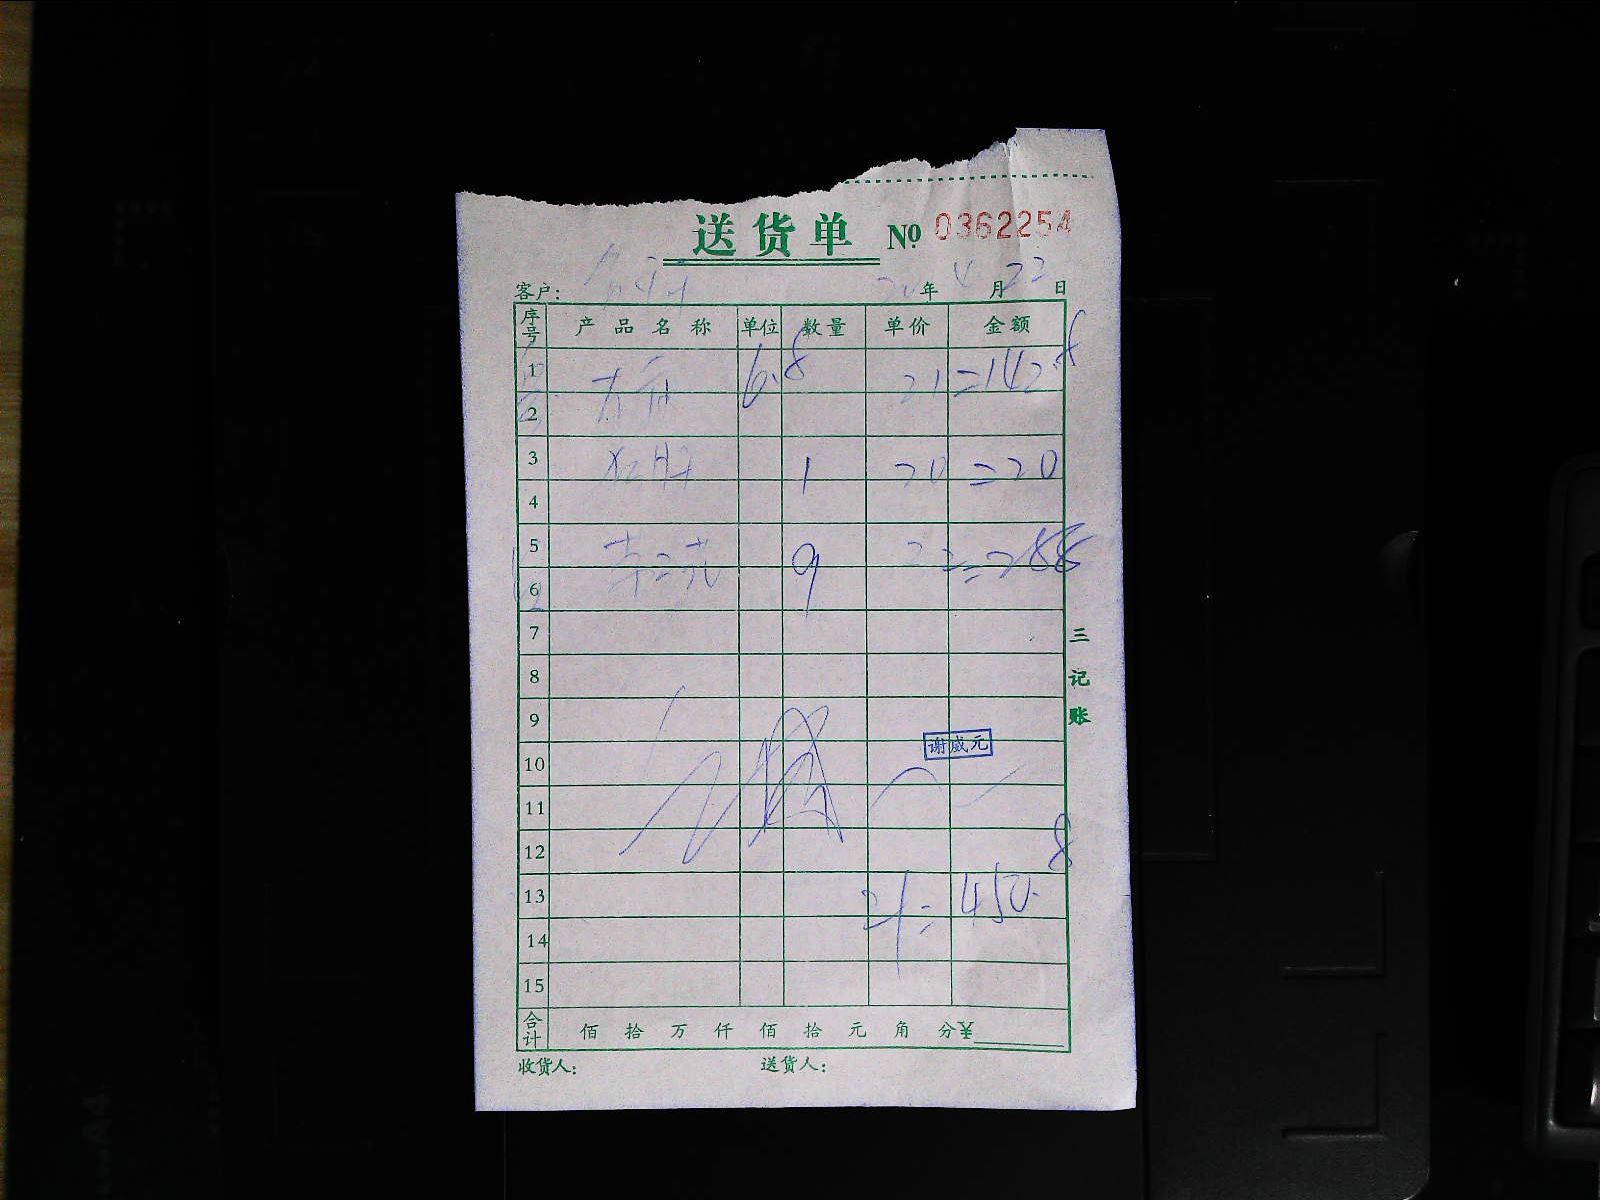 送货单 № 0362254
客户： 20年 4月22日
序号 产品名称 单位 数量 单价 金额
1 6.8 21 =142.8
2
3 1 20 =20
4
5 9 32 =288
6
7
8
9
10 谢威元
11
12
13 计= 450.8
14
15
合计 佰 拾 万 仟 佰 拾 元 角 分¥
收货人： 送货人：
三记账